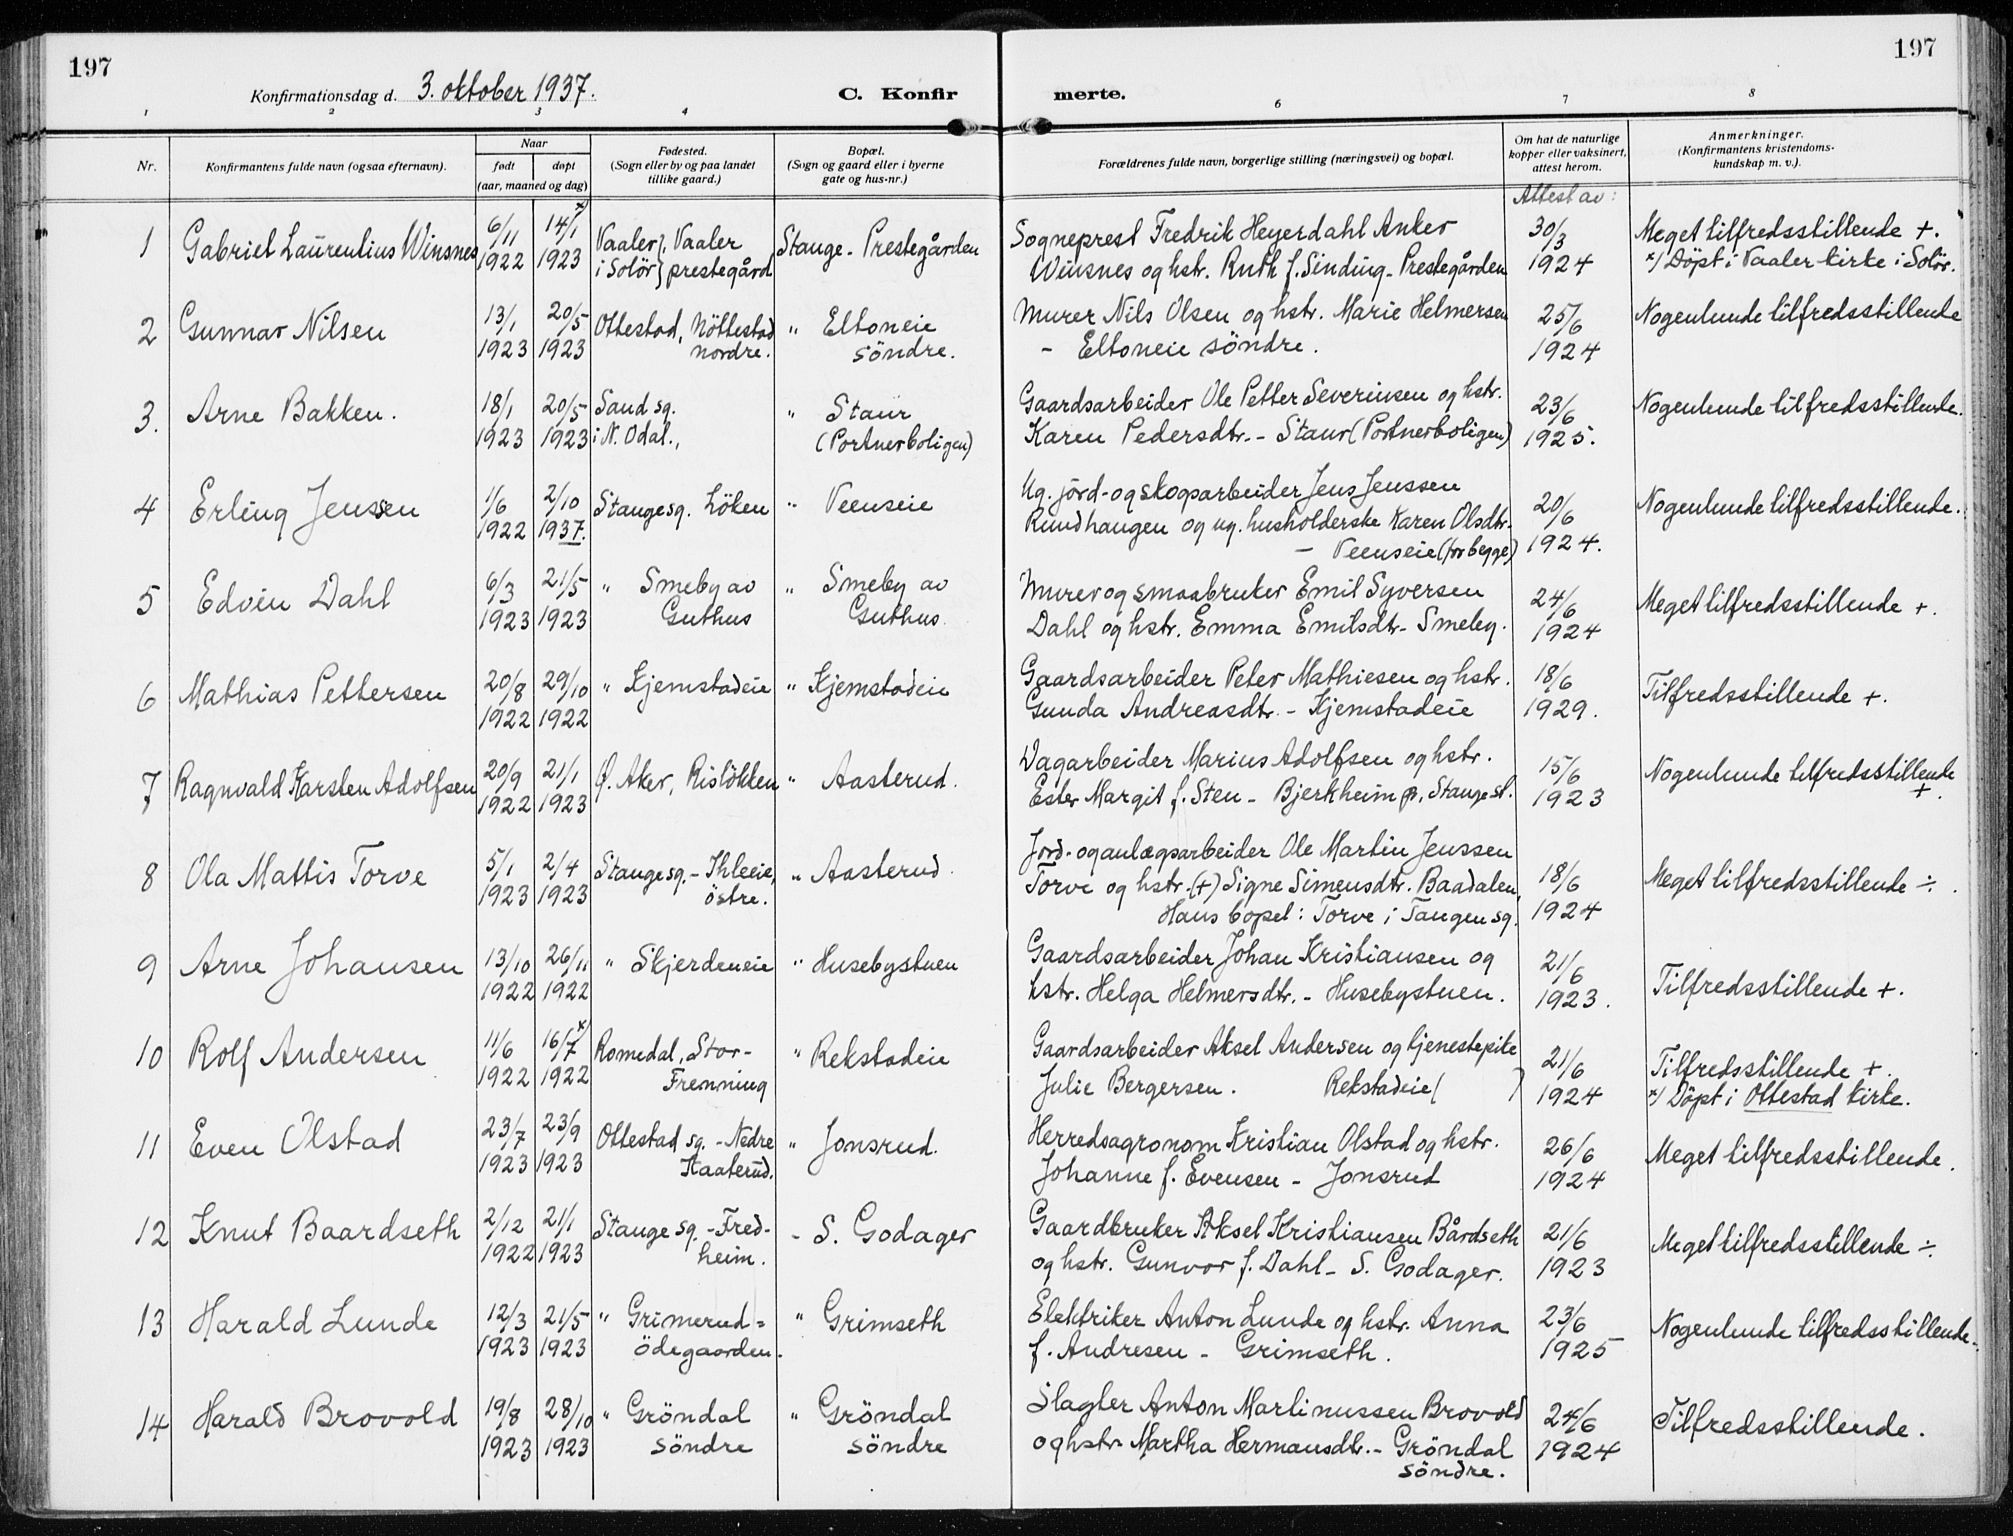 197
197
Konfirmationsdag d. 3. oktober 1937.
C. Konfir merte.
1 2 3 4 6 7 8
Nr.
Konfirmantens fulde navn (ogsaa efternavn).
Naar
født døpt
(aar, maaned og dag)
Fødested.
(Sogn eller by og paa landet
tillike gaard.)
Bopæl.
(Sogn og gaard eller i byerne
gate og hus-nr.)
Forældrenes fulde navn, borgerlige stilling (næringsvei) og bopæl.
Om hat de naturlige
kopper eller vaksinert,
attest herom.
Anmerkninger.
(Konfirmantens kristendoms-
kundskap m. v.).
Attest av:
1 Gabriel Laurentius Winsnes 6/11 1922 14/1 x) 1923 Vaaler i Solör}, Vaaler prestegård Stange - Prestegården Sogneprest Fredrik Heyerdahl Anker
Winsnes og hstr. Ruth f. Sinding - Prestegården 30/3 1924 Meget tilfredsstillende +.
x) Döpt i Vaaler kirke i Solör.
2 Gunnar Nilsen 13/1 1923 20/5 1923 Ottestad, Nöttestad nordre. " Eltoneie söndre. Murer Nils Olsen og hstr. Marie Helmersen
- Eltoneie söndre. 25/6 1924 Nogenlunde tilfredsstillende
3. Arne Bakken. 18/1 1923 20/5 1923 Sand sg. i N. Odal., " Staur (Portnerboligen) Gaardsarbeider Ole Petter Severinsen og hstr.
Karen Pedersdtr. - Staur (Portnerboligen) 23/6 1925. Nogenlunde tilfredsstillende.
4 Erling Jenssen 1/6 1922 2/10 1937. Stange sg. Löken " Veenseie Ug. jord- og skogsarbeider Jens Jenssen
Rundhaugen og ug. husholderske Karen Olsdtr.
- Veenseie (for begge) 20/6 1924. Nogenlunde tilfredsstillende.
5 Edvin Dahl 6/3 1923 21/5 1923 " Smeby av Guthus " Smeby av Guthus. Murer og smaabruker Emil Syversen
Dahl og hstr. Emma Emilsdtr - Smeby. 24/6 1924 Meget tilfredsstillende +.
6 Mathias Pettersen 20/8 1922 29/10 1922 " Kjemstadeie " Kjemstadeie Gaardsarbeider Peter Mathiesen og hstr.
Gunda Andreasdtr. - Kjemstadeie 18/6 1929. Tilfredsstillende +.
7 Ragnvald Karsten Adolfsen 20/9 1922 21/1 1923 Ø. Aker, Rislökken " Aasterud. Dagarbeider Marius Adolfsen og hstr.
Ester Margit f. Sten - Bjerkheim p. Stange st. 15/6 1923 Nogenlunde tilfredsstillende +.
8 Ola Mattis Torve 5/1 1923 2/4 1923 Stange sg. - Ihleeie, östre. " Aasterud. Jord- og anlægsarbeider Ole Martin Jenssen
Torve og hstr. (+) Signe Simensdtr. Baadalen,
Hans bopel: Torve i Tangen sg. 18/6 1924 Meget tilfredsstillende ÷.
9 Arne Johansen 13/10 1922 26/11 1922 " Skjerdeneie " Husebystuen Gaardsarbeider Johan Kristiansen og
hstr. Helga Helmersdtr. - Husebystuen. 21/6 1923. Tilfredsstillende +.
10 Rolf Andersen 11/6 1922 16/7 x) 1922 Romedal, Stor-Frenning " Rekstadeie Gaardsarbeider Aksel Andersen og tjenestepike
Julie Bergersen. Rekstadeie ( ) 21/6 1924 Tilfredsstillende +.
x) Döpt i Ottestad kirke.
11 Even Olstad 23/7 1923 23/9 1923 Ottestad sg. - Nedre Kaaterud. " Jonsrud. Herredsagronom Kristian Olstad og hstr.
Johanne f. Evensen - Jonsrud 26/6 1924 Meget tilfredsstillende.
12 Knut Baardseth 2/12 1922 21/1 1923 Stange sg. - Fred-heim. - S. Godager Gaardbruker Aksel Kristiansen Bårdseth
og hstr. Gunvor f. Dahl - S. Godager. 21/6 1923 Meget tilfredsstillende ÷.
13 Harald Lunde 12/3 1923 21/5 1923 " Grimerud=ödegaarden. " Grimseth Elektriker Anton Lunde og hstr. Anna
f. Andresen - Grimseth. 23/6 1925 Nogenlunde tilfredsstillende.
14 Harald Brovold 19/8 1923 28/10 1923 " Gröndal söndre " Gröndal söndre Slagter Anton Martinussen Brovold
og hstr Martha Hermansdtr. - Gröndal
söndre. 24/6 1924 Tilfredsstillende.